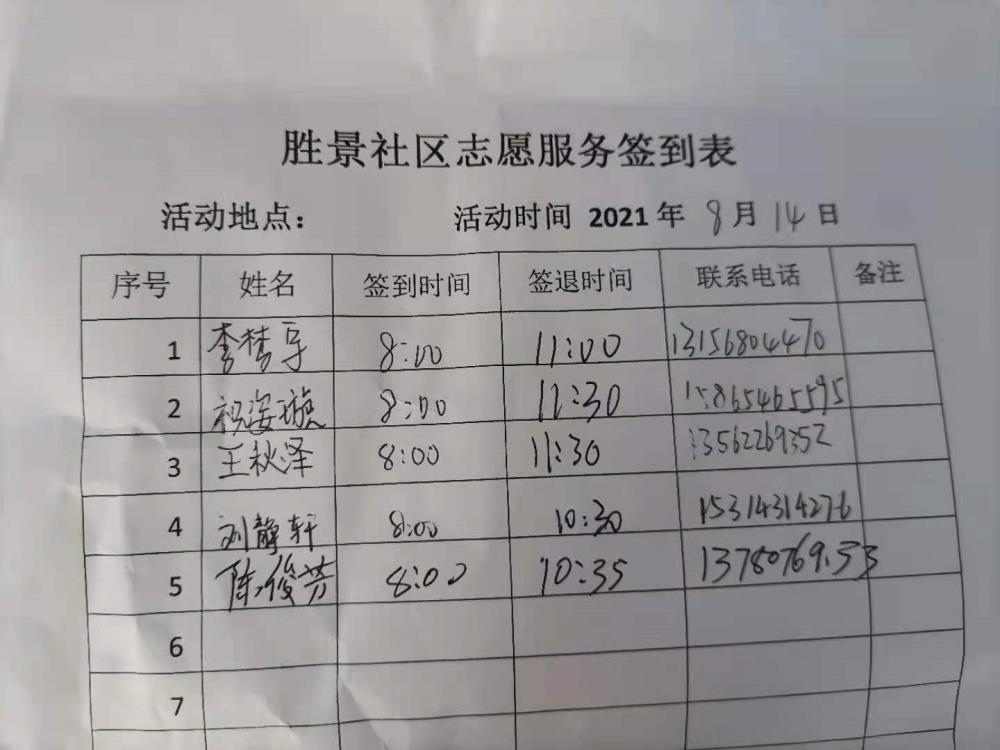 胜景社区志愿服务签到表
活动地点: 活动时间 2021 年 8 月 14 日
序号 姓名 签到时间 签退时间 联系电话 备注
1 李梦宇 8:00 11:00 13156804470
2 祝姿璇 8:00 11:30 15865465595
3 王秋泽 8:00 11:30 13562269352
4 刘静轩 8:00 10:30 15314314276
5 陈俊芳 8:00 10:35
6
7